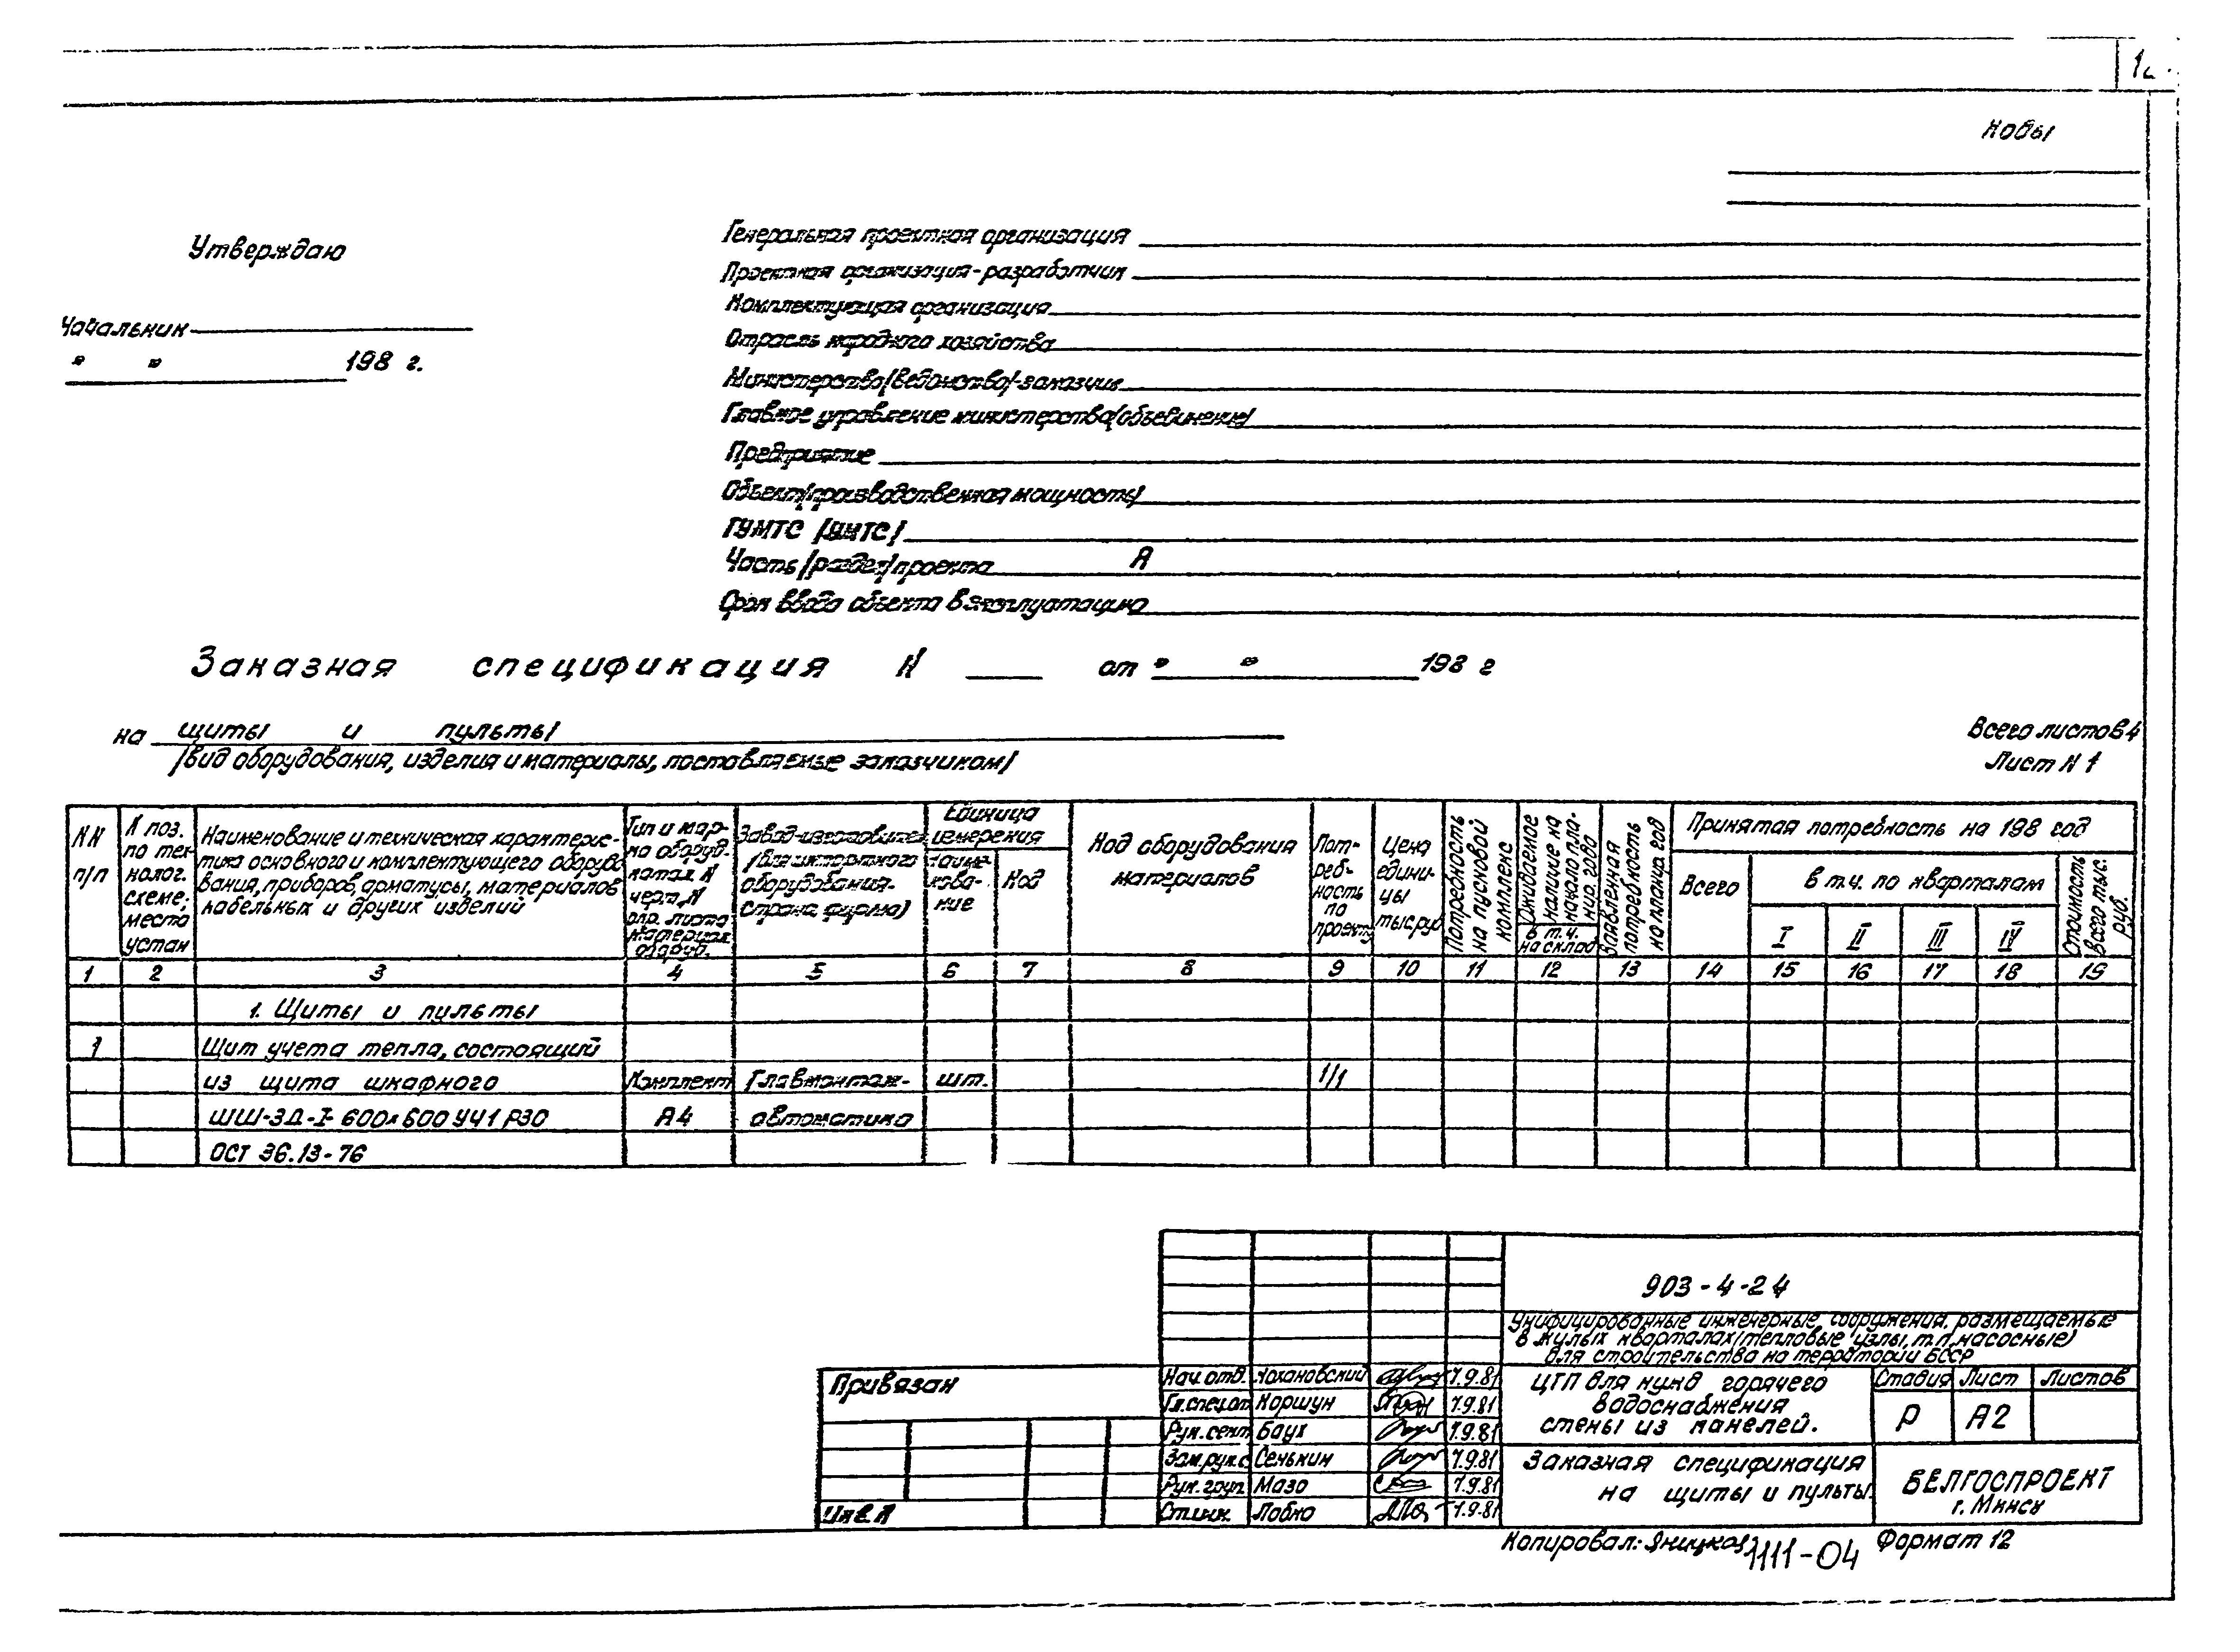 Коды
Утверждаю
Начальник
" " 198 г.
Генеральная проектная организация
Проектная организация-разработчик
Комплектующая организация
Отрасль народного хозяйства
Министерство/ведомство/-заказчик
Главное управление министерства(объединение)
Предприятие
Объект/производственная мощность/
ГУМТС /УМТС/
Часть/раздел/проекта А
Срок ввода объекта в эксплуатацию
Заказная спецификация N от " " 198 г
на щиты и пульты
/вид оборудования, изделия и материалы, поставляемые заказчиком/
Всего листов 4
Лист N 1
NN
п/п
N поз.
по тех
нолог.
схеме;
место
устан
Наименование и техническая характерис-
тика основного и комплектующего оборудо
вания, приборов, арматуры, материалов
кабельных и других изделий
Тип и мар-
ка оборуд.
катал. N
черт., N
опр. листа
материал
оборуд.
Завод-изготовитель
/для импортного
оборудования-
страна, фирма)
Единица
измерения
наиме-
нова-
ние
Код
Код оборудования
материалов
Пот-
реб-
ность
по
проекту
Цена
едини-
цы
тыс.руб
Потребность
на пусковой
комплекс
Ожидаемое
наличие на
начало пла-
нир. года
в т.ч.
на склад
Заявленная
потребность
на планир. год
Принятая потребность на 198 год
Всего
в т.ч. по кварталам
I II III IV
Стоимость
всего тыс.
руб.
1 2 3 4 5 6 7 8 9 10 11 12 13 14 15 16 17 18 19
1. Щиты и пульты
1 Щит учета тепла, состоящий
из щита шкафного Комплект Главмонтаж- шт. 1/1
ШШ-ЗД-I-600х600 УЧ1 Р30 А4 автоматика
ОСТ 36.13-76
903-4-24
Унифицированные инженерные сооружения, размещаемые
в жилых кварталах(тепловые узлы, т.п, насосные)
для строительства на территории БССР
Привязан
Инв. N
Нач. отд. Кохановский 7.9.81
Гл.спец.от Коршун 7.9.81
Рук. сект Баух 7.9.81
Зам.рук.с Сенькин 7.9.81
Рук. груп Мазо 7.9.81
Ст.инж. Лобко 7.9.81
ЦТП для нужд горячего
водоснабжения
стены из панелей.
Стадия Лист Листов
Р А2
Заказная спецификация
на щиты и пульты.
БЕЛГОСПРОЕКТ
г. Минск
Копировал: Формат 12
1111-04